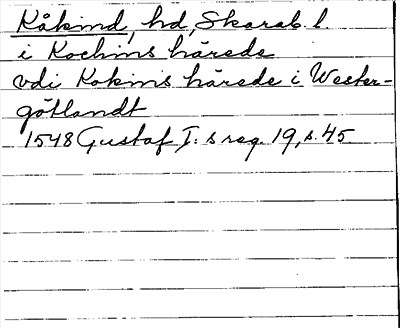 Kåkind, hd, Skarab. l.
i Kochins härede
vdi Kakins härede i Wester-
götlandt
1548 Gustaf I:s reg. 19, s. 45